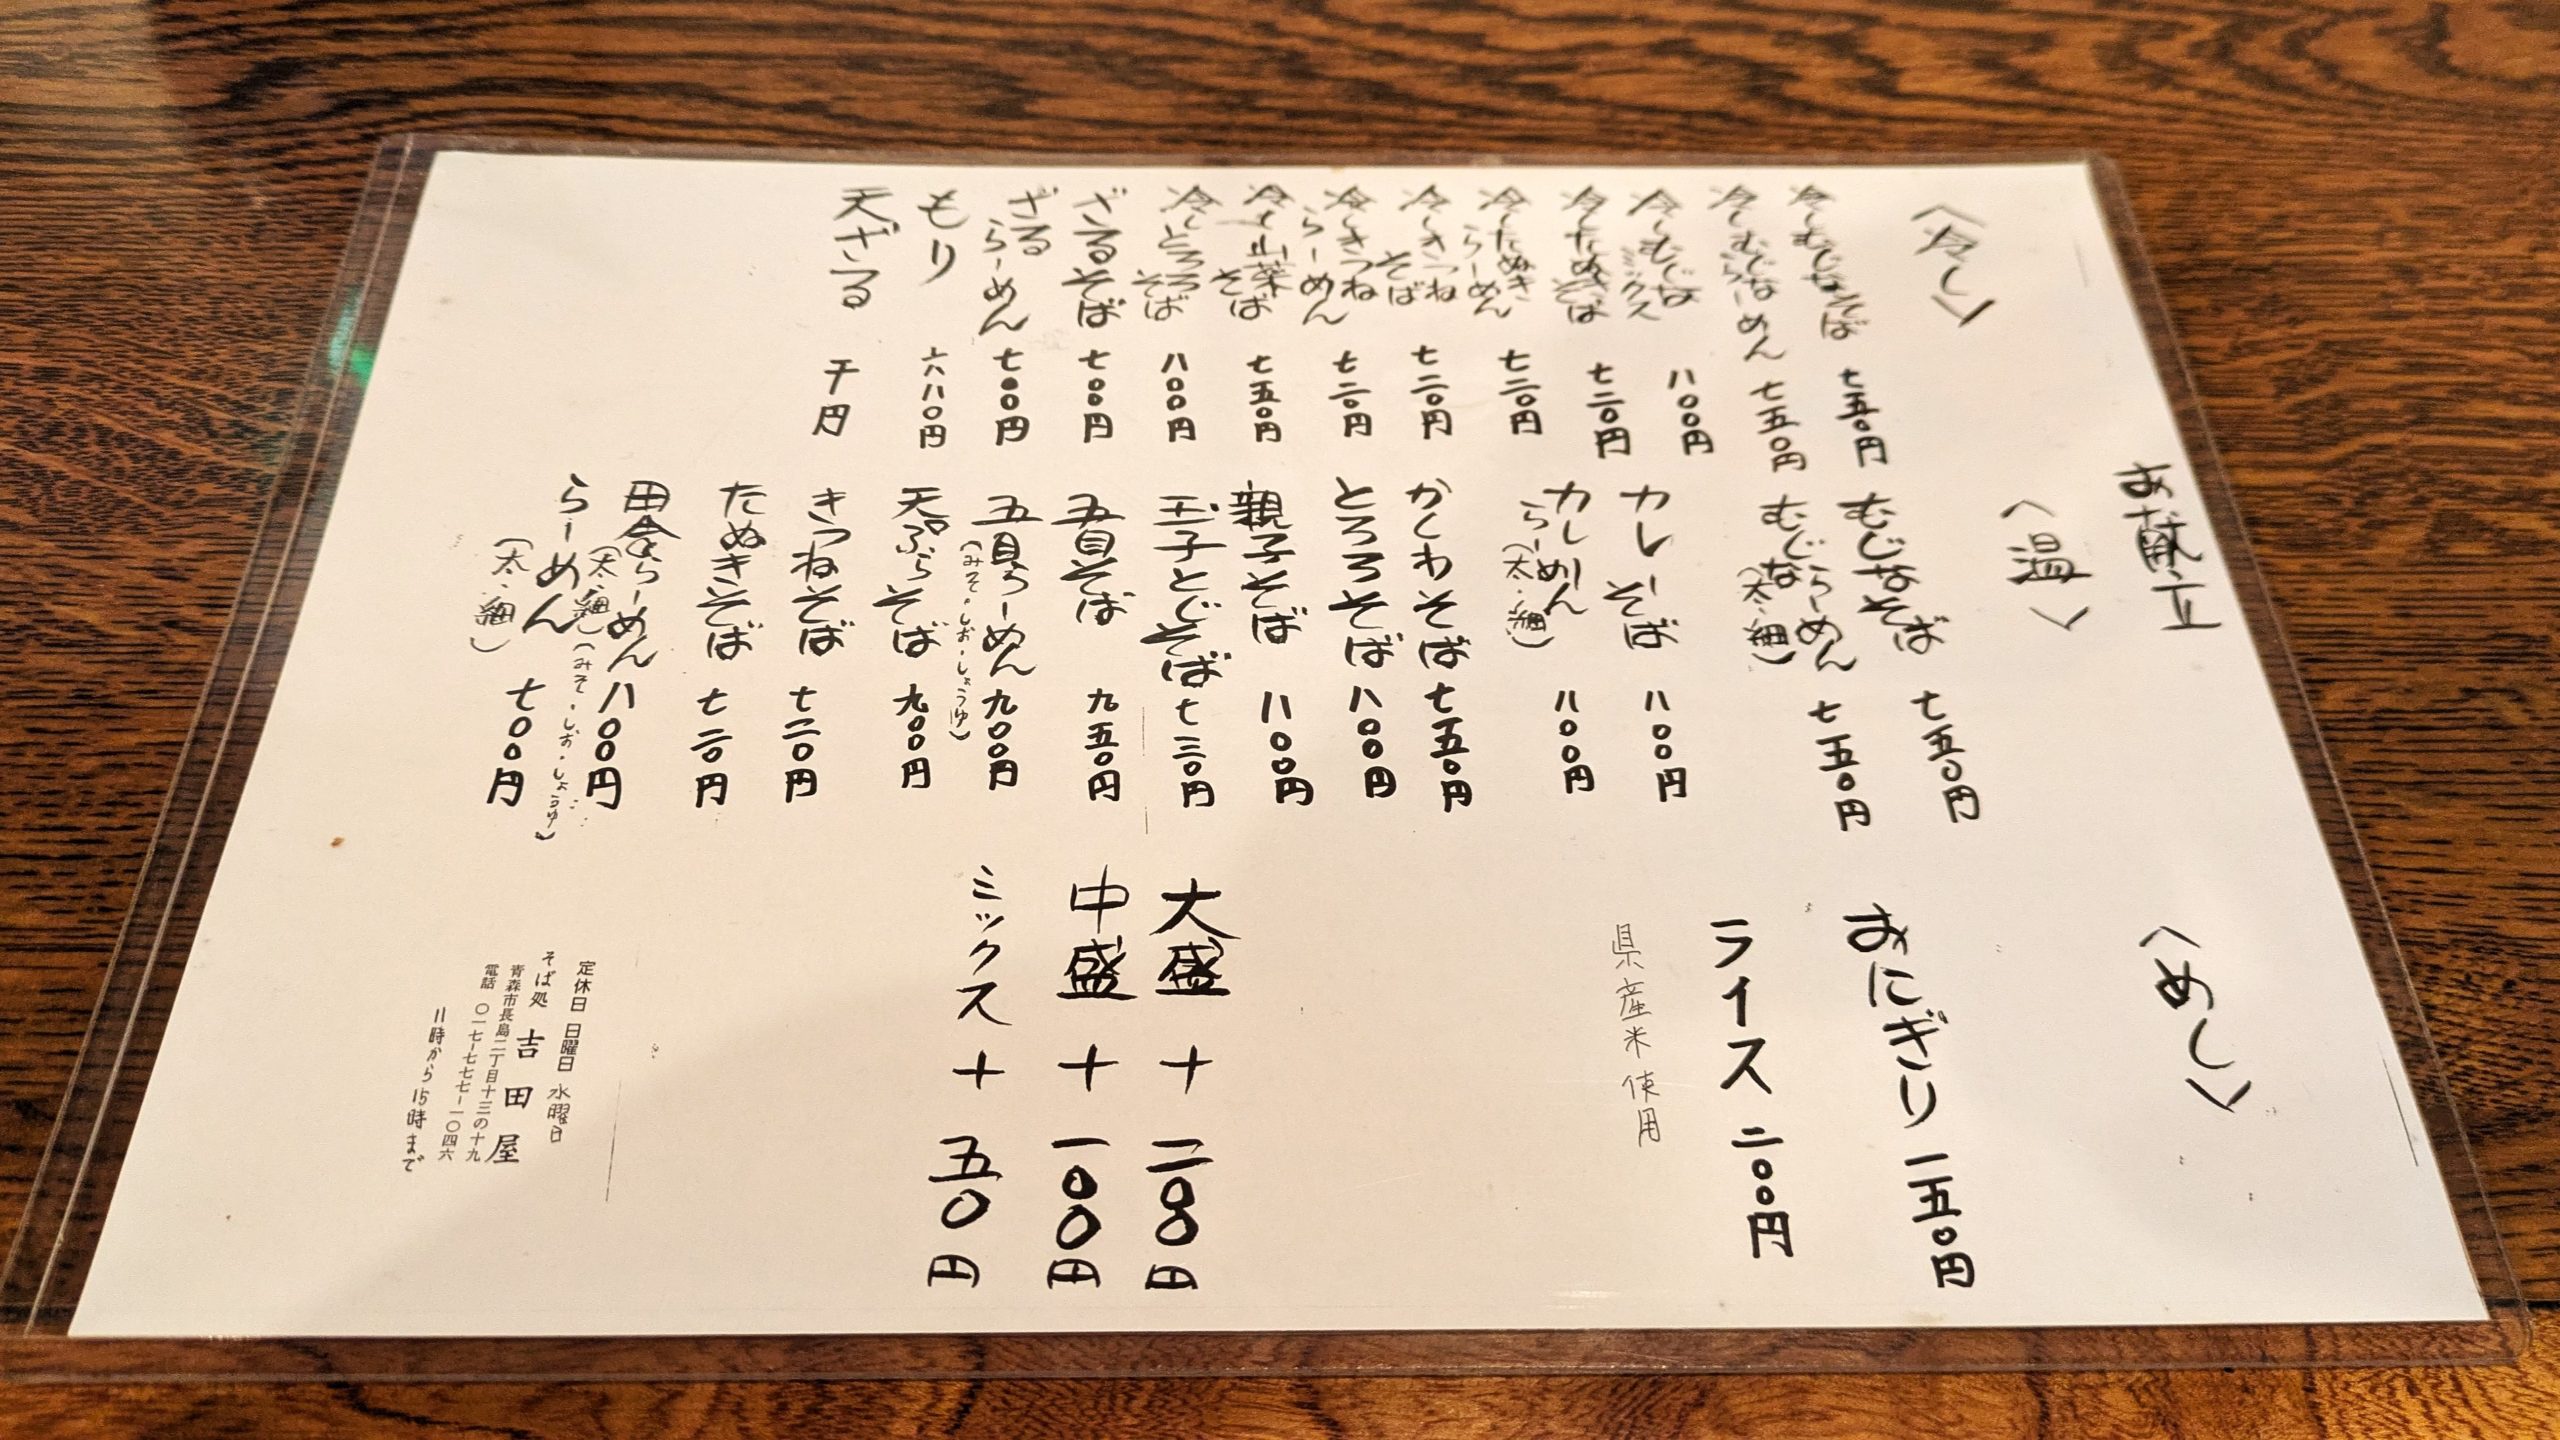 お献立
〈冷し〉
冷しむじなそば 七五〇円
冷しむじならーめん 七五〇円
冷しむじなミックス 八〇〇円
冷したぬきそば 七二〇円
冷したぬきらーめん 七二〇円
冷しきつねそば 七二〇円
冷しきつねらーめん 七二〇円
冷し山菜そば 七五〇円
冷しとろろそば 八〇〇円
ざるそば 七〇〇円
ざるらーめん 七〇〇円
もり 六八〇円
天ざる 千円
〈温〉
むじなそば 七五〇円
むじならーめん(太・細) 七五〇円
カレーそば 八〇〇円
カレーらーめん(太・細) 八〇〇円
かしわそば 七五〇円
とろろそば 八〇〇円
親子そば 八〇〇円
玉子とじそば 七三〇円
五目そば 九五〇円
五目らーめん(みそ・しお・しょうゆ) 九〇〇円
天ぷらそば 九〇〇円
きつねそば 七二〇円
たぬきそば 七二〇円
田舎らーめん(太・細)(みそ・しお・しょうゆ) 八〇〇円
らーめん(太・細) 七〇〇円
〈めし〉
おにぎり 一五〇円
ライス 二〇〇円
県産米使用
大盛 + 二〇〇円
中盛 + 一〇〇円
ミックス + 五〇円
定休日 日曜日 水曜日
そば処 吉田屋
青森市長島二丁目十三の十九
電話 〇一七-七七七-一〇四六
11時から15時まで